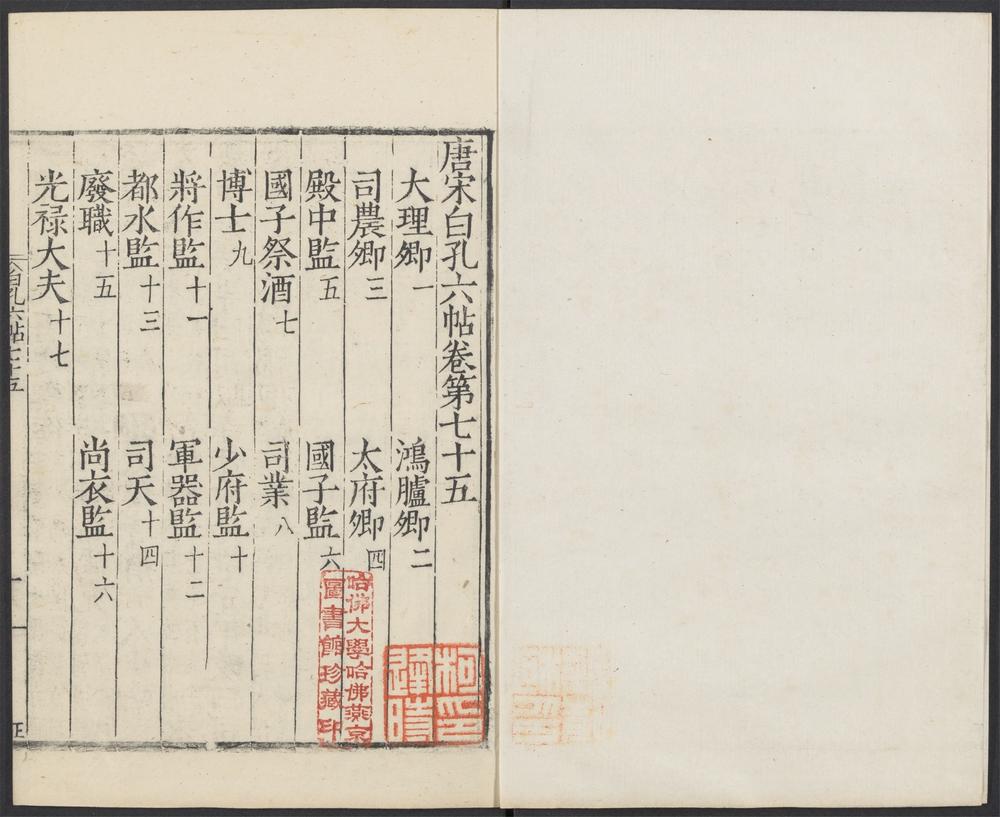 唐宋白孔六帖卷第七十五
大理卿一 鴻臚卿二
司農卿三 太府卿四
殿中監五 國子監六
國子祭酒七 司業八
博士九 少府監十
將作監十一 軍器監十二
都水監十三 司天十四
廢職十五 尚衣監十六
光禄大夫十七
白孔六帖七十五
一
哈佛大學哈佛燕京
圖書館珍藏印
柯逢時印